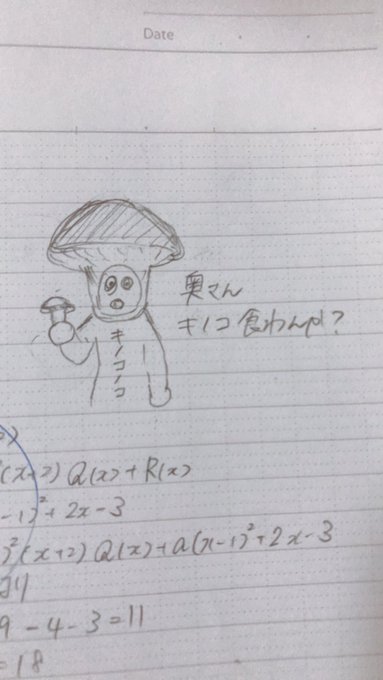 Date
奥さん
キノコ食わんか?
キノコノコ
(x+2)Q(x)+R(x)
-1)²+2x-3
)²(x+2)Q(x)+a(x-1)²+2x-3
より
9-4-3=11
=18